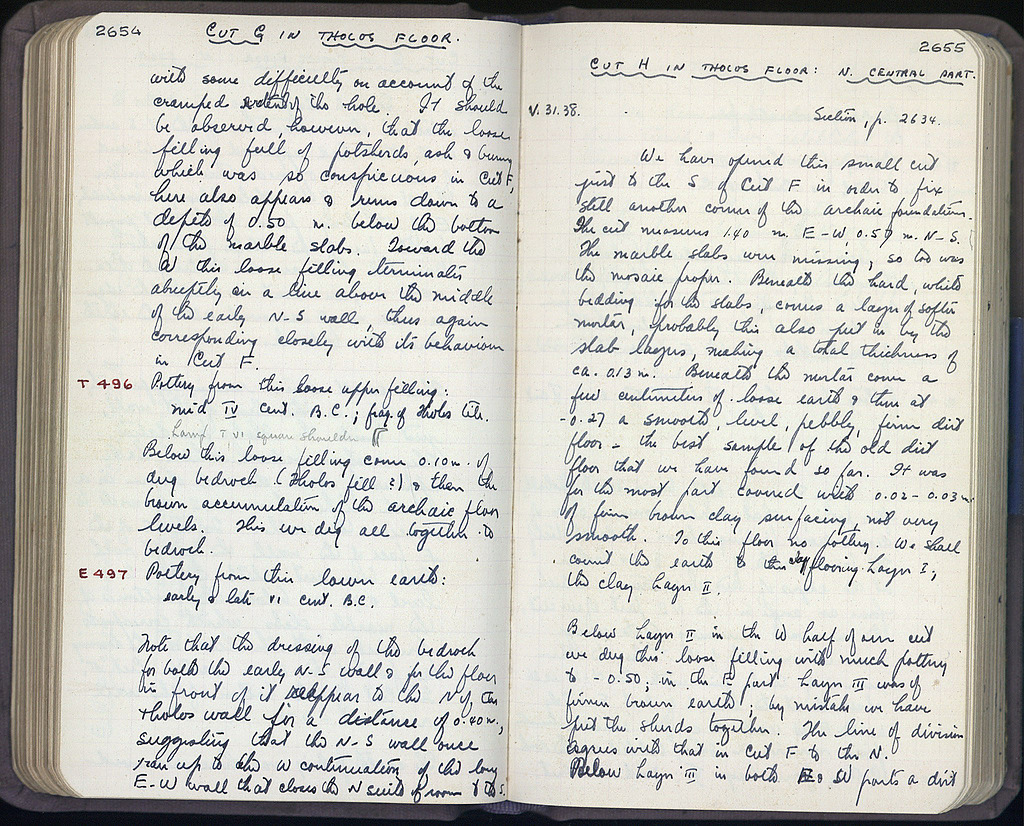 2654
CUT G IN THOLOS FLOOR.
with some difficulty on account of the
cramped extent of the hole. It should
be observed, however, that the loose
filling full of potsherds, ash & burning
which was so conspicuous in Cut F,
here also appears & runs down to a
depth of 0.50 m. below the bottom
of the marble slabs. Toward the
W this loose filling terminates
abruptly in a line above the middle
of the early N-S wall, thus again
corresponding closely with its behaviour
in Cut F.
T 496 Pottery from this loose upper filling:
mid IV cent. B.C.; frag. of Tholos tile.
Lamp T VI square shoulder
Below this loose filling come 0.10 m. of
dug bedrock (Tholos fill?) & then the
brown accumulation of the archaic floor
levels. This we dig all together to
bedrock.
E 497 Pottery from this lower earth:
early & late VI cent. B.C.
Note that the dressing of the bedrock
for both the early N-S wall & for the floor
in front of it reappear to the N of the
tholos wall for a distance of 0.40 m,
suggesting that the N-S wall once
ran up to the W continuation of the long
E-W wall that closes the N suite of rooms to the S.
2655
CUT H IN THOLOS FLOOR: N. CENTRAL PART.
V.31.38.
Section, p. 2634.
We have opened this small cut
just to the S of Cut F in order to fix
still another corner of the archaic foundations.
The cut measures 1.40 m. E-W, 0.57 m. N-S.
The marble slabs were missing, so too was
the mosaic proper. Beneath the hard, white
bedding for the slabs, comes a layer of softer
mortar, probably this also put in by the
slab layers, making a total thickness of
ca. 0.13 m. Beneath the mortar come a
few centimeters of loose earth & then at
-0.27 a smooth, level, pebbly, firm dirt
floor - the best sample of the old dirt
floor that we have found so far. It was
for the most part covered with 0.02-0.03 m.
of firm brown clay surfacing, not very
smooth. To this floor no pottery. We shall
count the earth to this clay flooring Layer I;
the clay Layer II.
Below Layer II in the W half of our cut
we dug this loose filling with much pottery
to -0.50; in the E part Layer III was of
firmer brown earth; by mistake we have
put the sherds together. The line of division
agrees with that in Cut F to the N.
Below Layer III in both E & W parts a dirt